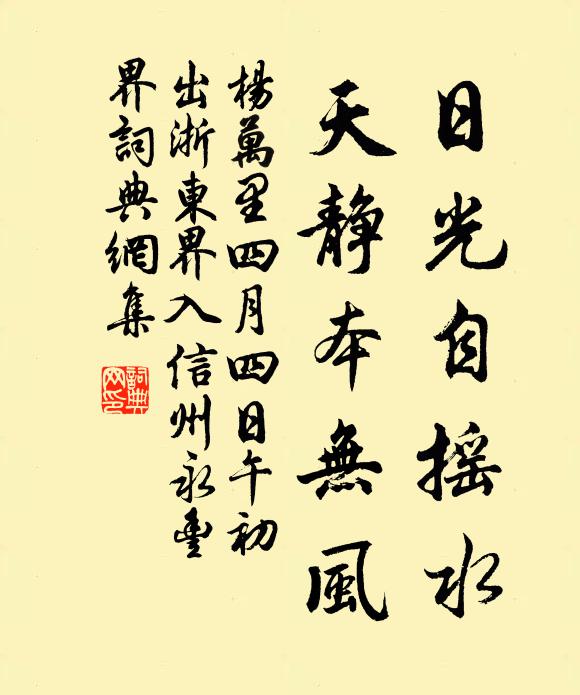 日光自摇水
天静本無風
楊萬里四月四日午初
出浙東界入信州永豐
界詞典網集
詞典
网印